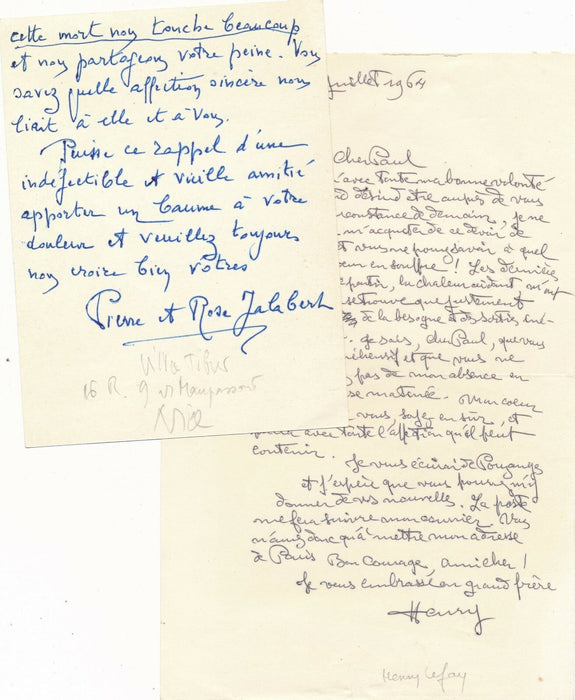 cette mort nous touche beaucoup
et nous partageons votre peine. Vous
savez quelle affection sincère nous
liait à elle et à vous.
Puisse ce rappel d'une
indéfectible et vieille amitié
apporter un baume à votre
douleur et veuillez toujours
nous croire bien vôtres
Pierre et Rose Jalabert
Villa Tibur
16 R. G de Maupassant
Nice
juillet 1964
Cher Paul
avec toute ma bonne volonté
désir d'être auprès de vous
circonstance de demain, je ne
m'acqueter de ce devoir de
t vous ne pouvez savoir à quel
coeur en souffre ! Les dernières
la chaleur aidant m'ont
se trouve que justement
de la besogne et des sorties
je sais, cher Paul, que vous
et que vous ne
pas de mon absence en
se matinée. Mon coeur
vous, soyez en sûr, et
avec toute l'affection qu'il peut
contenir.
Je vous écrirai de Pouzauges
et j'espère que vous pourrez m'y
donner de vos nouvelles. La poste
me fera suivre mon courrier. Vous
n'aurez donc qu'à mettre mon adresse
de Paris Bon Courage, ami cher !
Je vous embrasse en grand frère
Henry
Henry Lefay